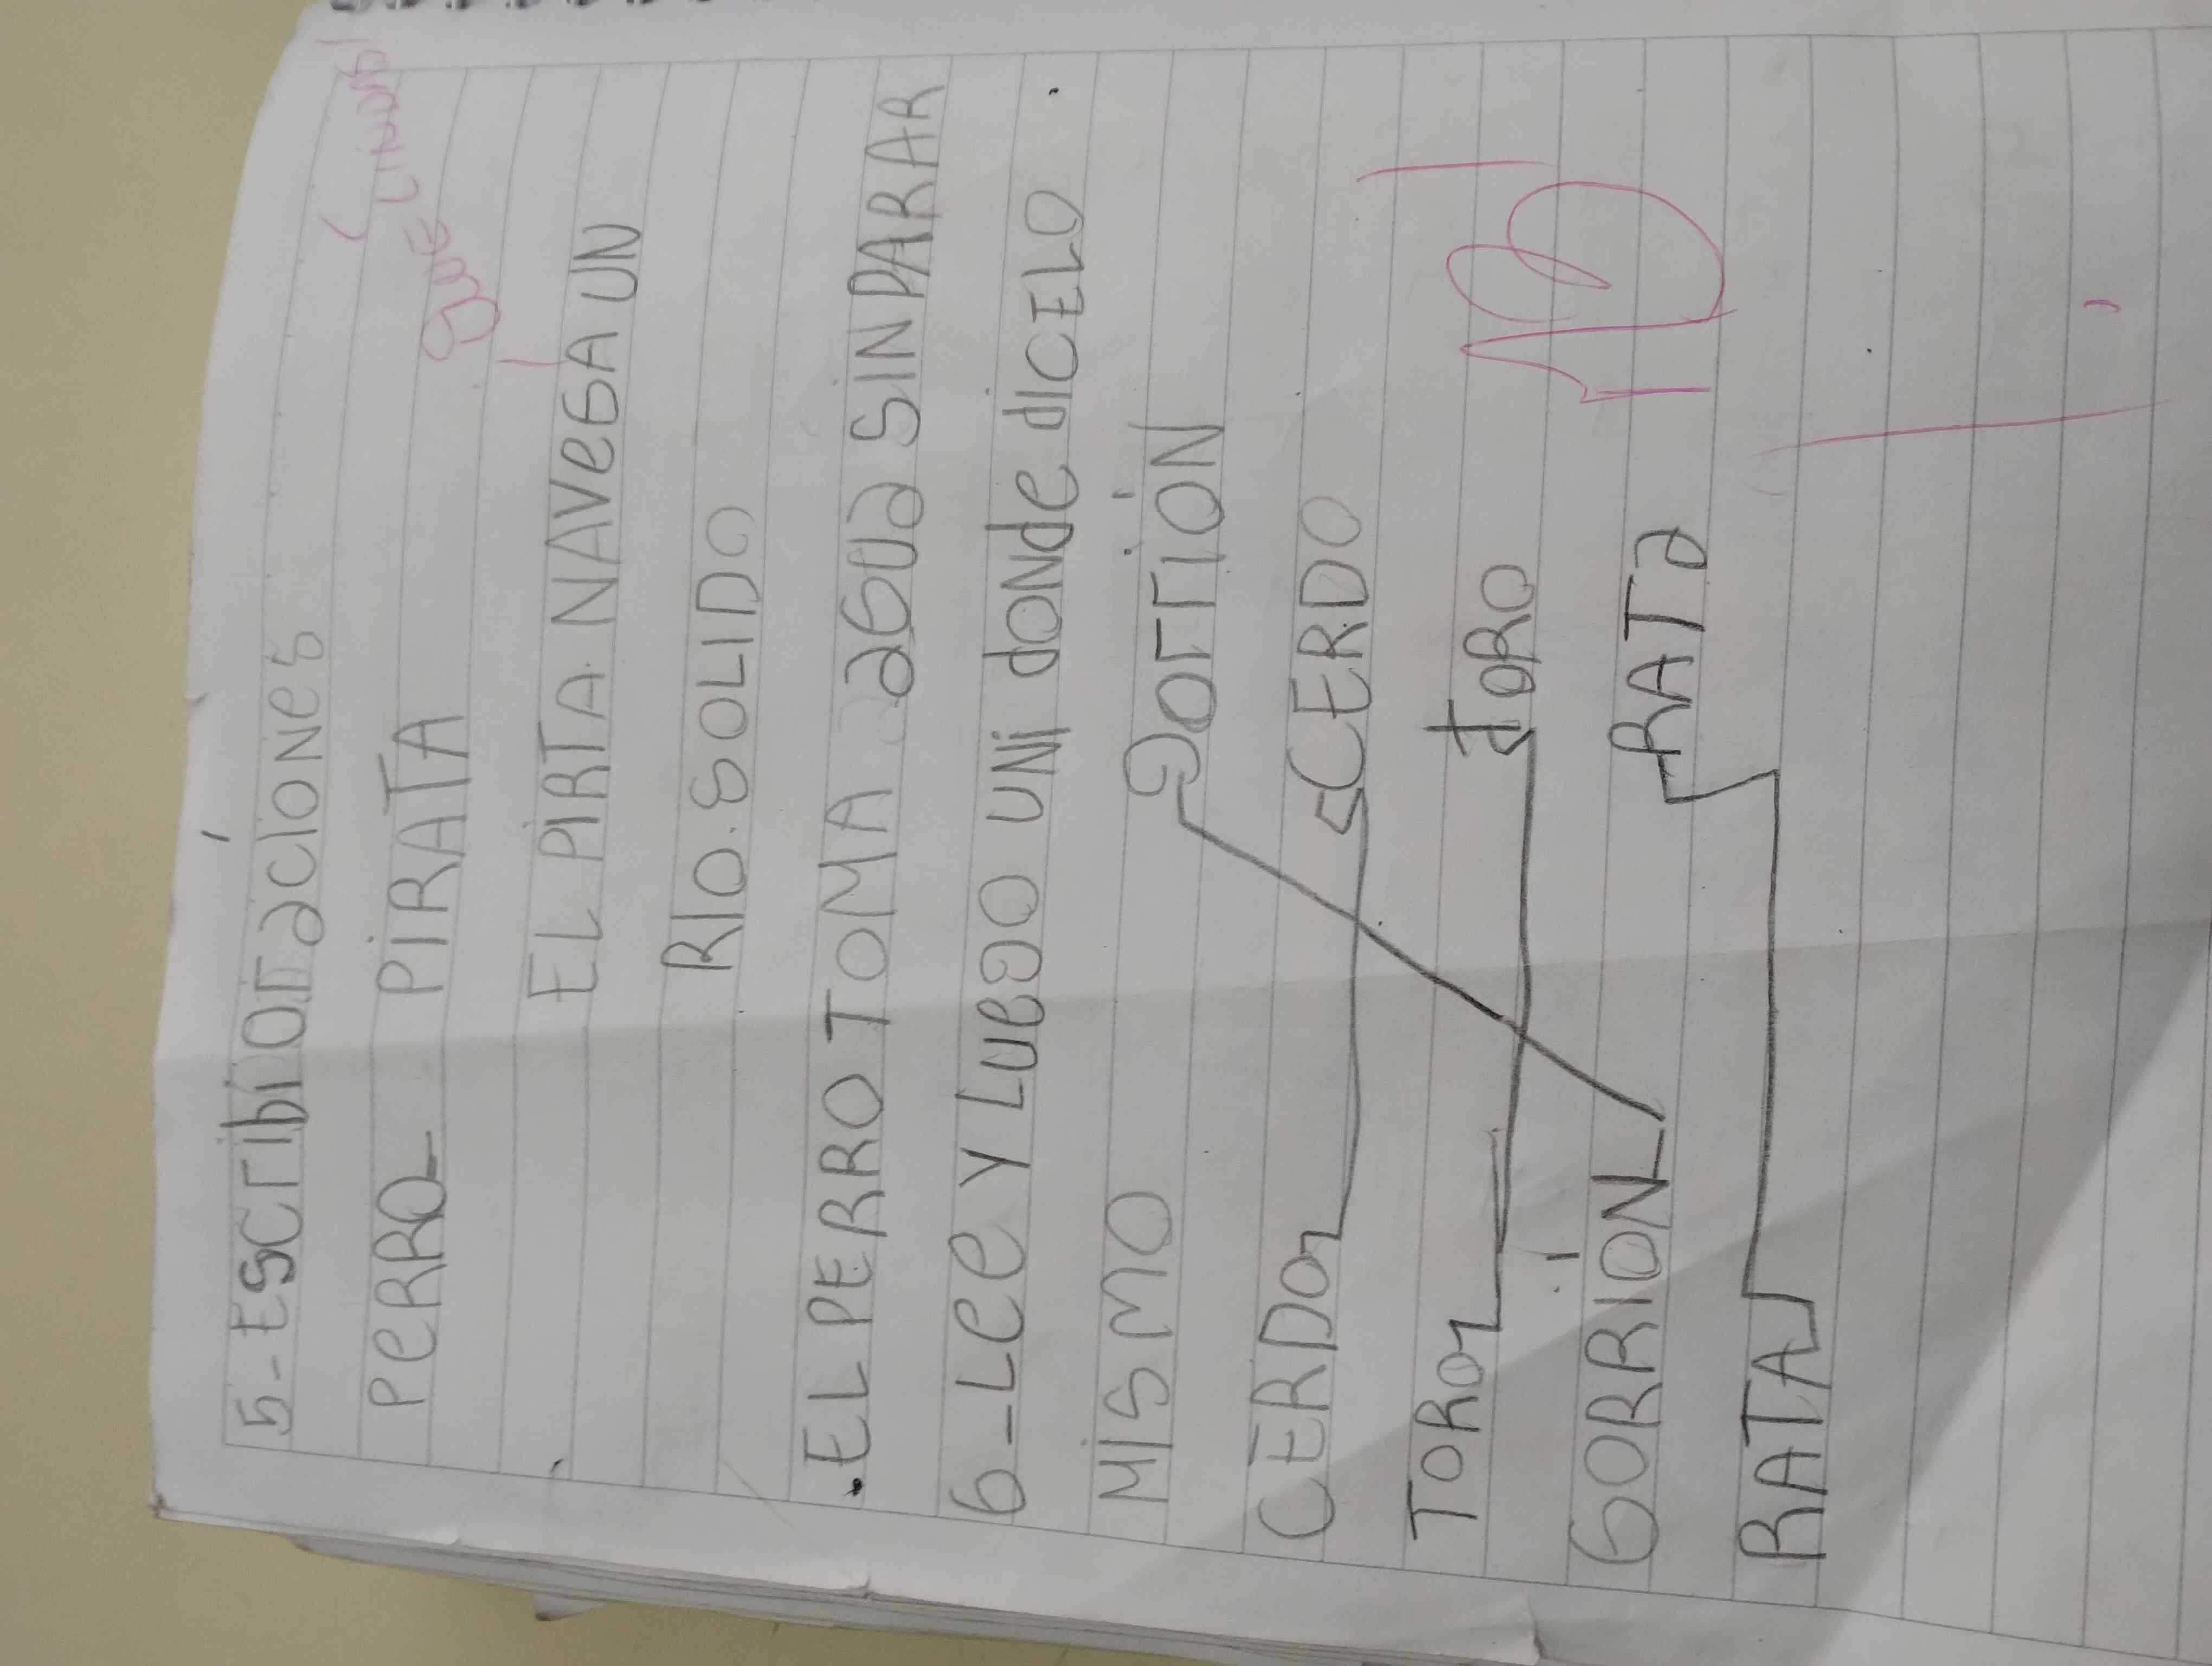 5-Escribí oraciones
Perro PIRATA
¡QUE LINDO!
EL PIRTA NAVEGA UN
RIO. SOLIDO
.EL PERRO TOMA AGUA SIN PARAR
6-Lee Y Luego UNi donde dice LO
MISMO
gorrión
CERDO CERDO
TORO toRO
GORRIÓN RATa
RATA